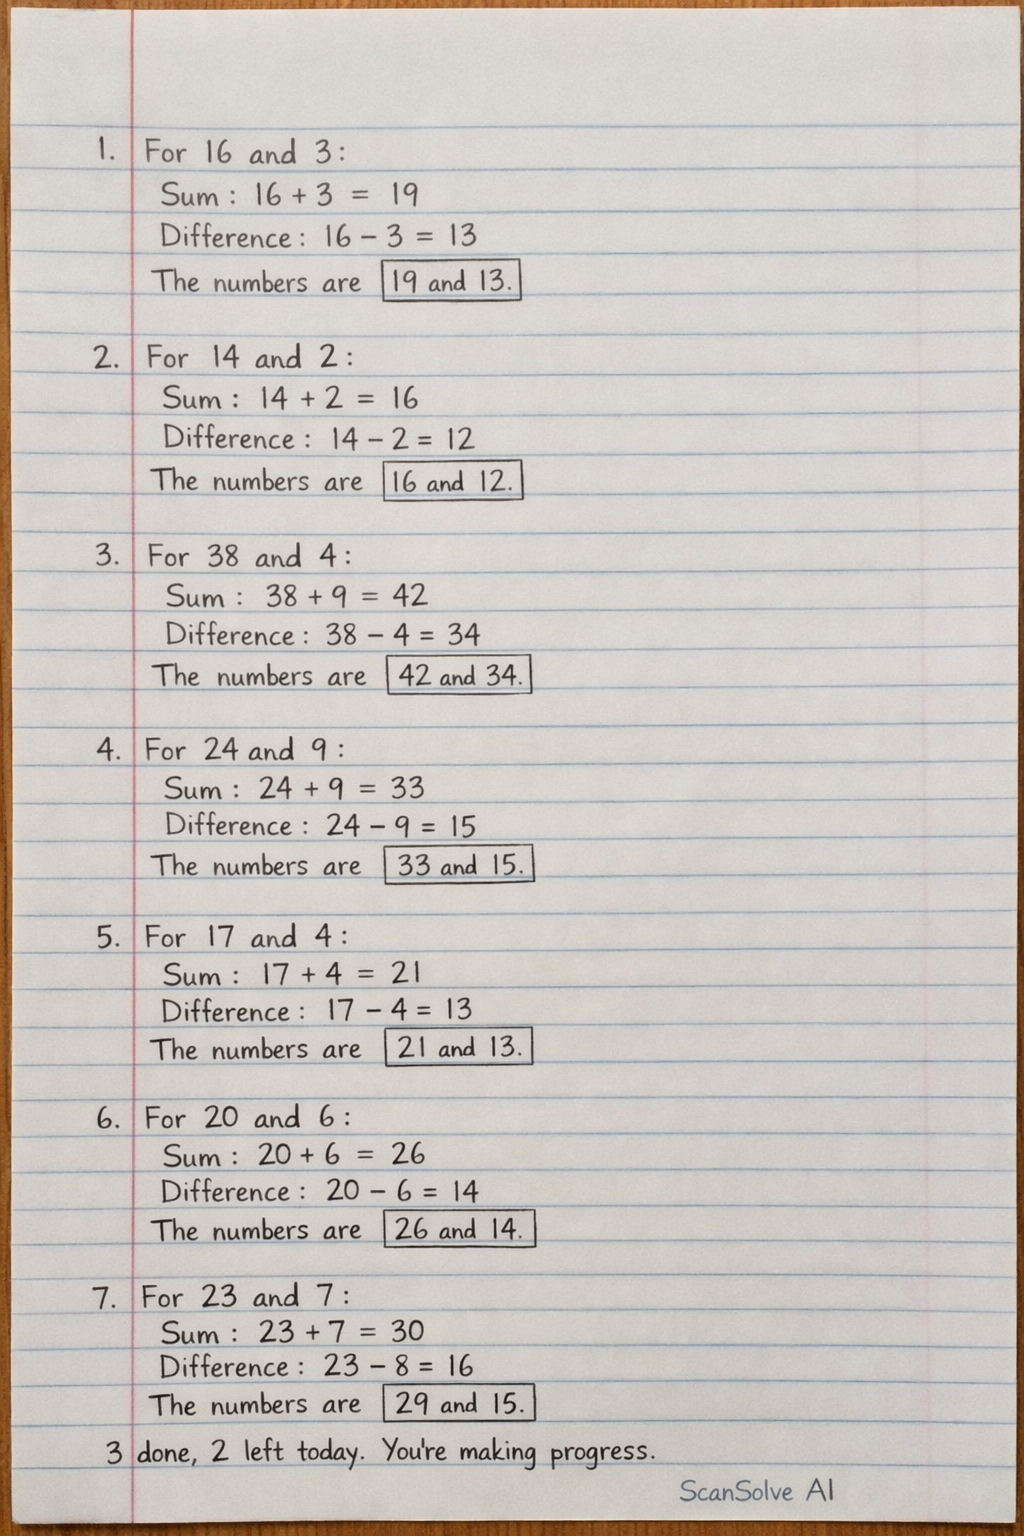 1. For 16 and 3:
Sum: 16 + 3 = 19
Difference: 16 - 3 = 13
The numbers are 19 and 13.
2. For 14 and 2:
Sum: 14 + 2 = 16
Difference: 14 - 2 = 12
The numbers are 16 and 12.
3. For 38 and 4:
Sum: 38 + 9 = 42
Difference: 38 - 4 = 34
The numbers are 42 and 34.
4. For 24 and 9:
Sum: 24 + 9 = 33
Difference: 24 - 9 = 15
The numbers are 33 and 15.
5. For 17 and 4:
Sum: 17 + 4 = 21
Difference: 17 - 4 = 13
The numbers are 21 and 13.
6. For 20 and 6:
Sum: 20 + 6 = 26
Difference: 20 - 6 = 14
The numbers are 26 and 14.
7. For 23 and 7:
Sum: 23 + 7 = 30
Difference: 23 - 8 = 16
The numbers are 29 and 15.
3 done, 2 left today. You're making progress.
ScanSolve AI